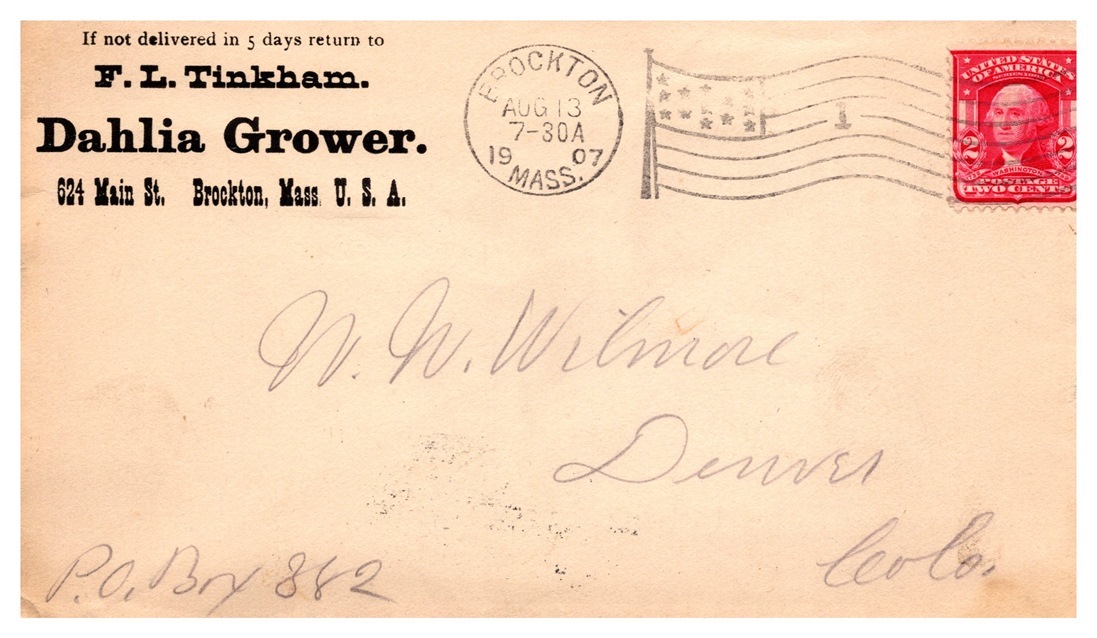 If not delivered in 5 days return to
F. L. Tinkham.
Dahlia Grower.
624 Main St. Brockton, Mass. U. S. A.
BROCKTON
AUG 13
7-30A
19 07
MASS.
1
UNITED STATES
OF AMERICA
SERIES 1902
2 2
1732 WASHINGTON 1799
POSTAGE
TWO CENTS
W. W. Wilmore
Denver
Colo.
P.O. Box 382